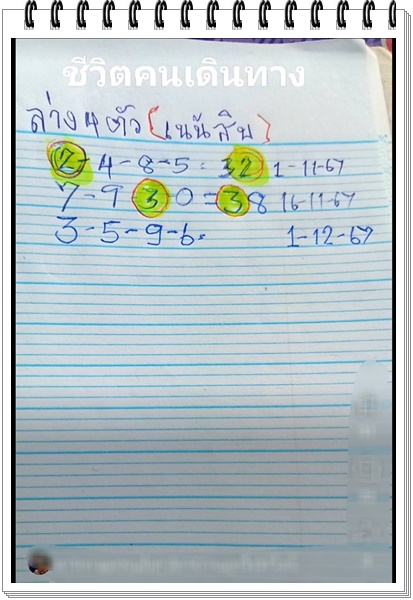 ชีวิตคนเดินทาง
ล่าง 4 ตัว (เน้นสิบ)
2-4-8-5= 32 1-11-67
7-9-3-0=38 16-11-67
3-5-9-6= 1-12-67